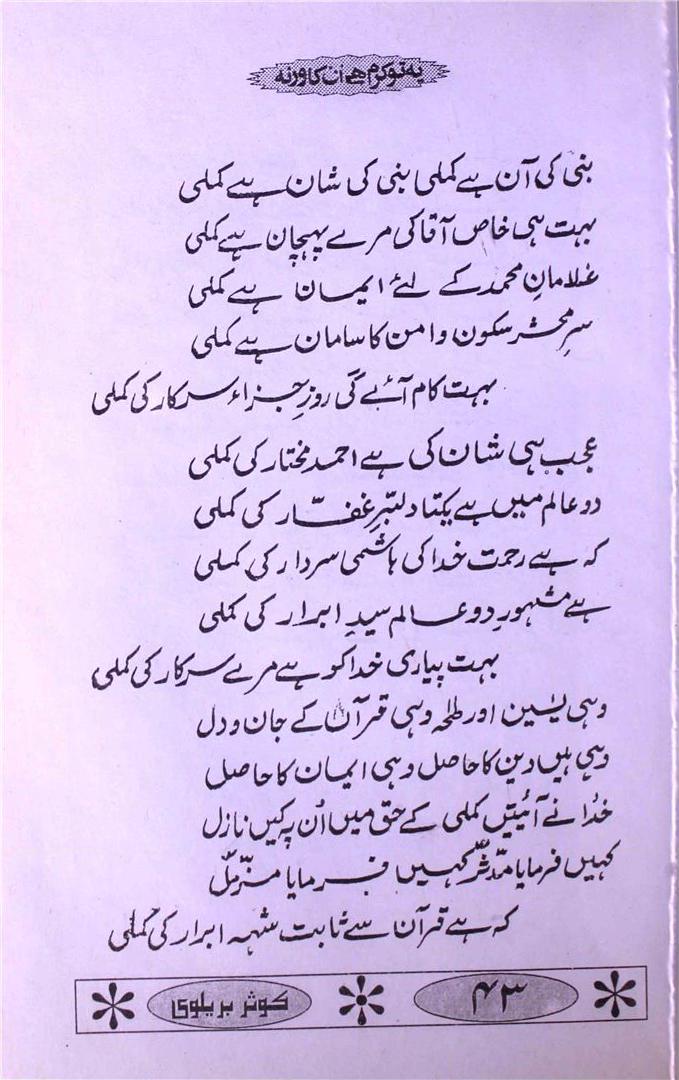 یہ تو کرم ہے ان کا ورنہ
نبی کی آن ہے کملی نبی کی شان ہے کملی
بہت ہی خاص آقا کی مرے پہچان ہے کملی
غلامانِ محمد کے لئے ایمان ہے کملی
سرِ محشر سکون و امن کا سامان ہے کملی
بہت کام آئے گی روزِ جزاء سرکار کی کملی
عجب ہی شان کی ہے احمد مختار کی کملی
دو عالم میں ہے یکتا دلبرِ غفّار کی کملی
کہ ہے رحمت خدا کی ہاشمی سردار کی کملی
ہے مشہورِ دو عالم سیدِ ابرار کی کملی
بہت پیاری خدا کو ہے مرے سرکار کی کملی
وہی یٰسین اور طٰہٰ وہی قرآن کے جان و دل
وہی ہیں دین کا حاصل وہی ایمان کا حاصل
خدا نے آیتیں کملی کے حق میں اُن پہ کیں نازل
کہیں فرمایا مدّثّر کہیں فرمایا مزّمّل
کہ ہے قرآن سے ثابت شہہ ابرار کی کملی
۴۳
کوثر بریلوی